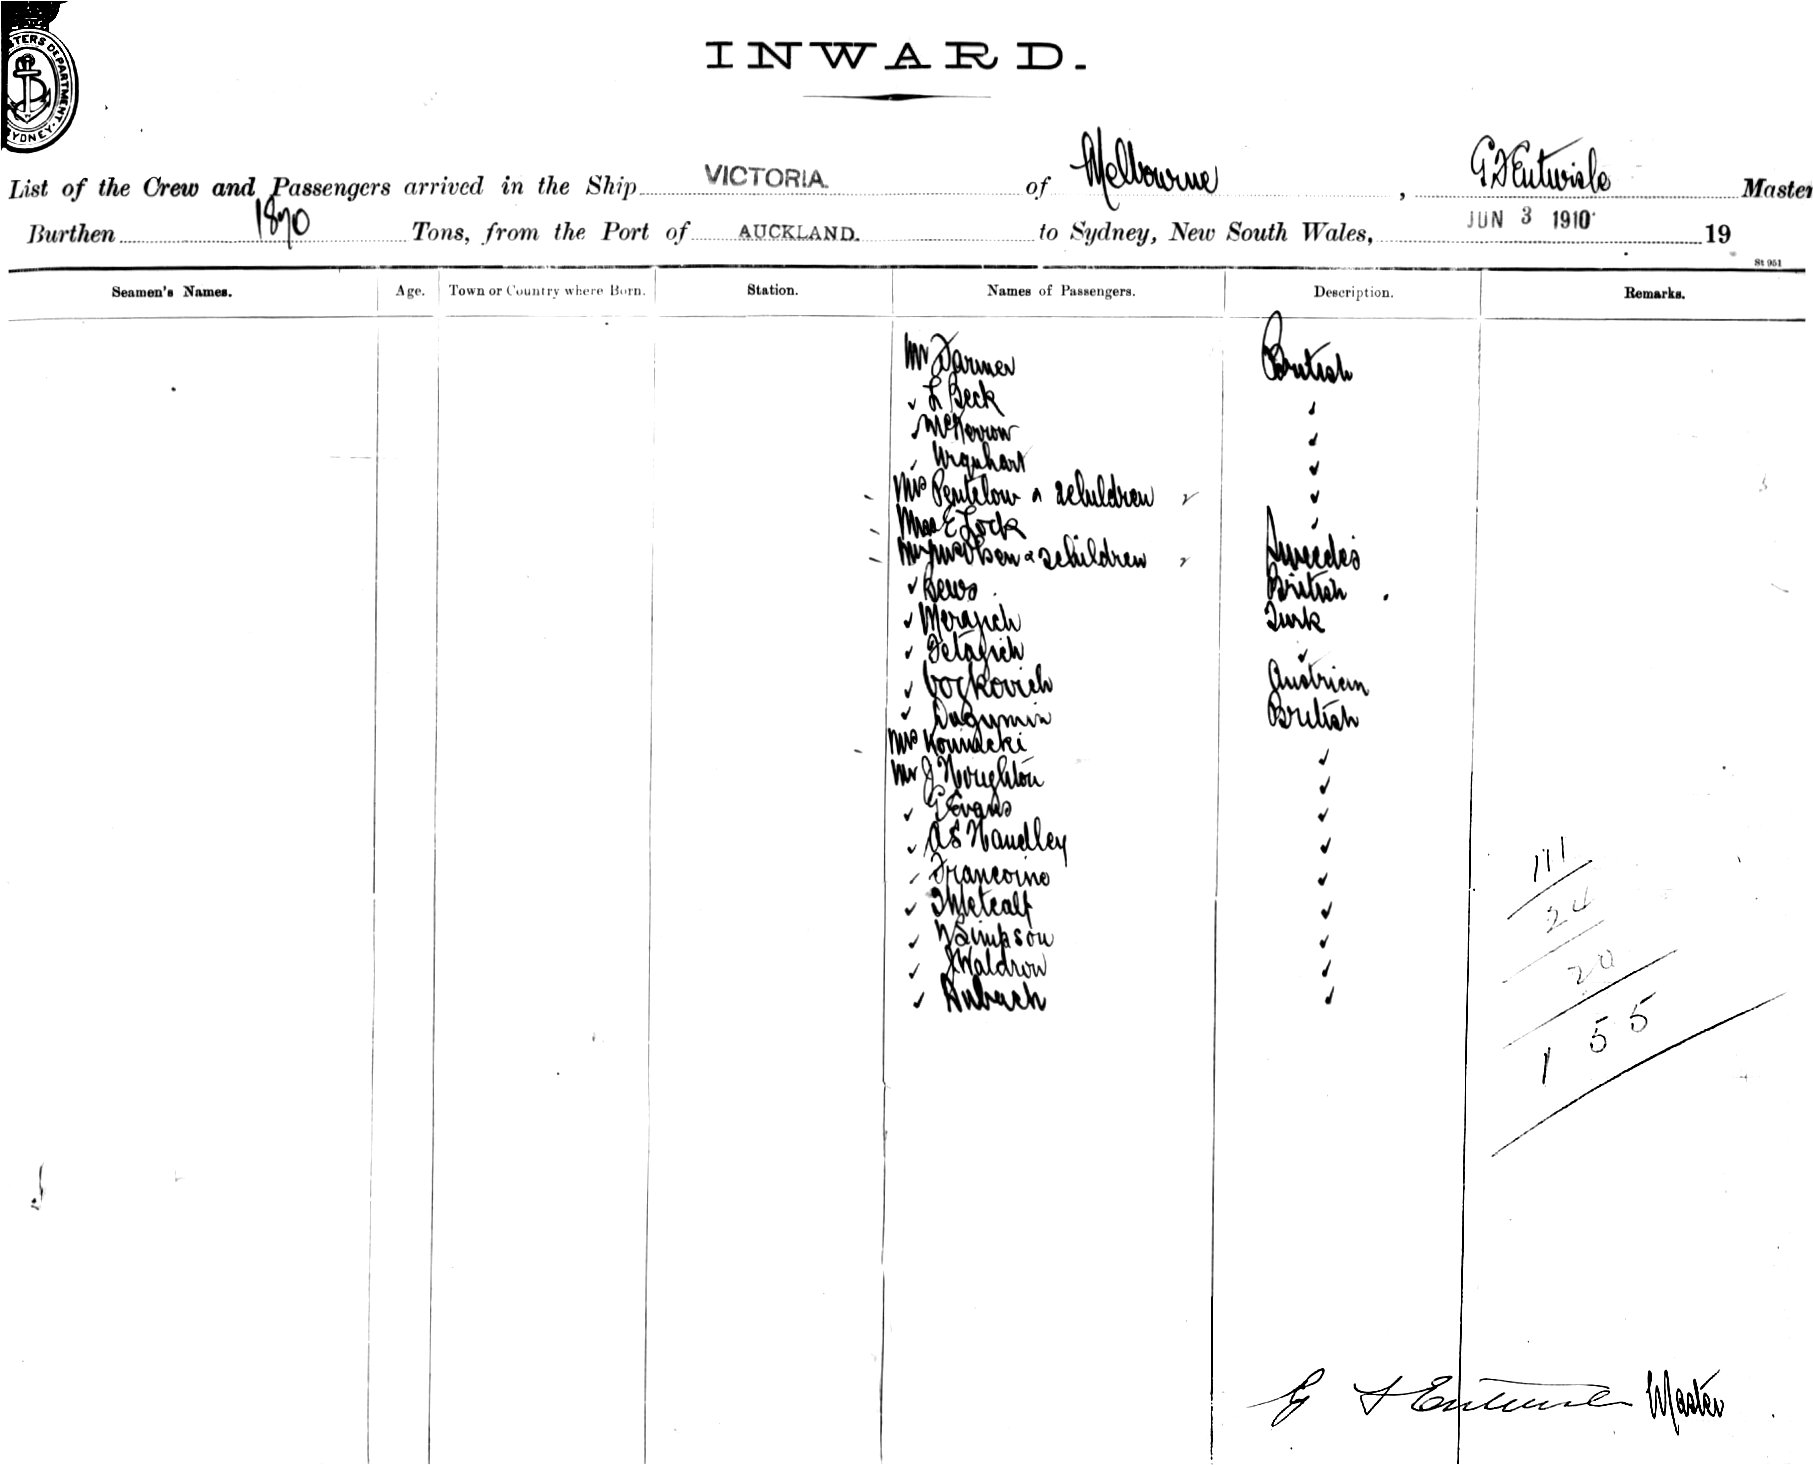 TERS DEPARTMENT. SYDNEY.
INWARD.
List of the Crew and Passengers arrived in the Ship VICTORIA. of Melbourne, G F Entwisle Master
Burthen 1870 Tons, from the Port of AUCKLAND. to Sydney, New South Wales, JUN 3 1910 19
St 951
Seamen's Names. Age. Town or Country where Born. Station. Names of Passengers. Description. Remarks.
Mr Farmer British
✓ L Beck ✓
✓ McKerrow ✓
✓ Urquhart ✓
Mrs Pentelow & 2 children ✓
Miss E Lock ✓
& 2 children Swedes
✓ Bews British
✓ Turk
✓ ✓
✓ Austrian
✓ British
Mrs ✓
Mr J ✓
✓ G Evans ✓
✓ A E Handley ✓
✓ ✓
✓ Metcalf ✓
✓ Simpson ✓
✓ J Waldron ✓
✓ ✓
111
24
20
155
G F Entwisle Master